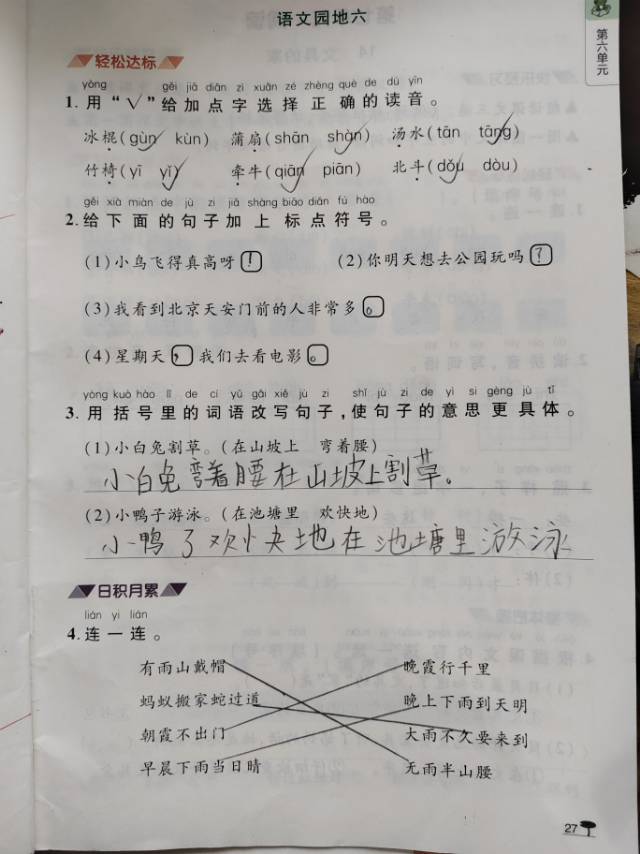 语文园地六
第六单元
轻松达标
yòng gěi jiā diǎn zì xuǎn zé zhèng què de dú yīn
1.用“√”给加点字选择正确的读音。
冰棍(gùn kùn) 蒲扇(shān shàn) 汤水(tān tāng)
竹椅(yī yǐ) 牵牛(qiān piān) 北斗(dǒu dòu)
gěi xià miàn de jù zi jiā shàng biāo diǎn fú hào
2.给下面的句子加上标点符号。
(1)小鸟飞得真高呀! (2)你明天想去公园玩吗?
(3)我看到北京天安门前的人非常多。
(4)星期天,我们去看电影。
yòng kuò hào lǐ de cí yǔ gǎi xiě jù zi shǐ jù zi de yì si gèng jù tǐ
3.用括号里的词语改写句子,使句子的意思更具体。
(1)小白兔割草。(在山坡上 弯着腰)
小白兔弯着腰在山坡上割草。
(2)小鸭子游泳。(在池塘里 欢快地)
小鸭了欢快地在池塘里游泳
日积月累
lián yi lián
4.连一连。
有雨山戴帽 晚霞行千里
蚂蚁搬家蛇过道 晚上下雨到天明
朝霞不出门 大雨不久要来到
早晨下雨当日晴 无雨半山腰
27